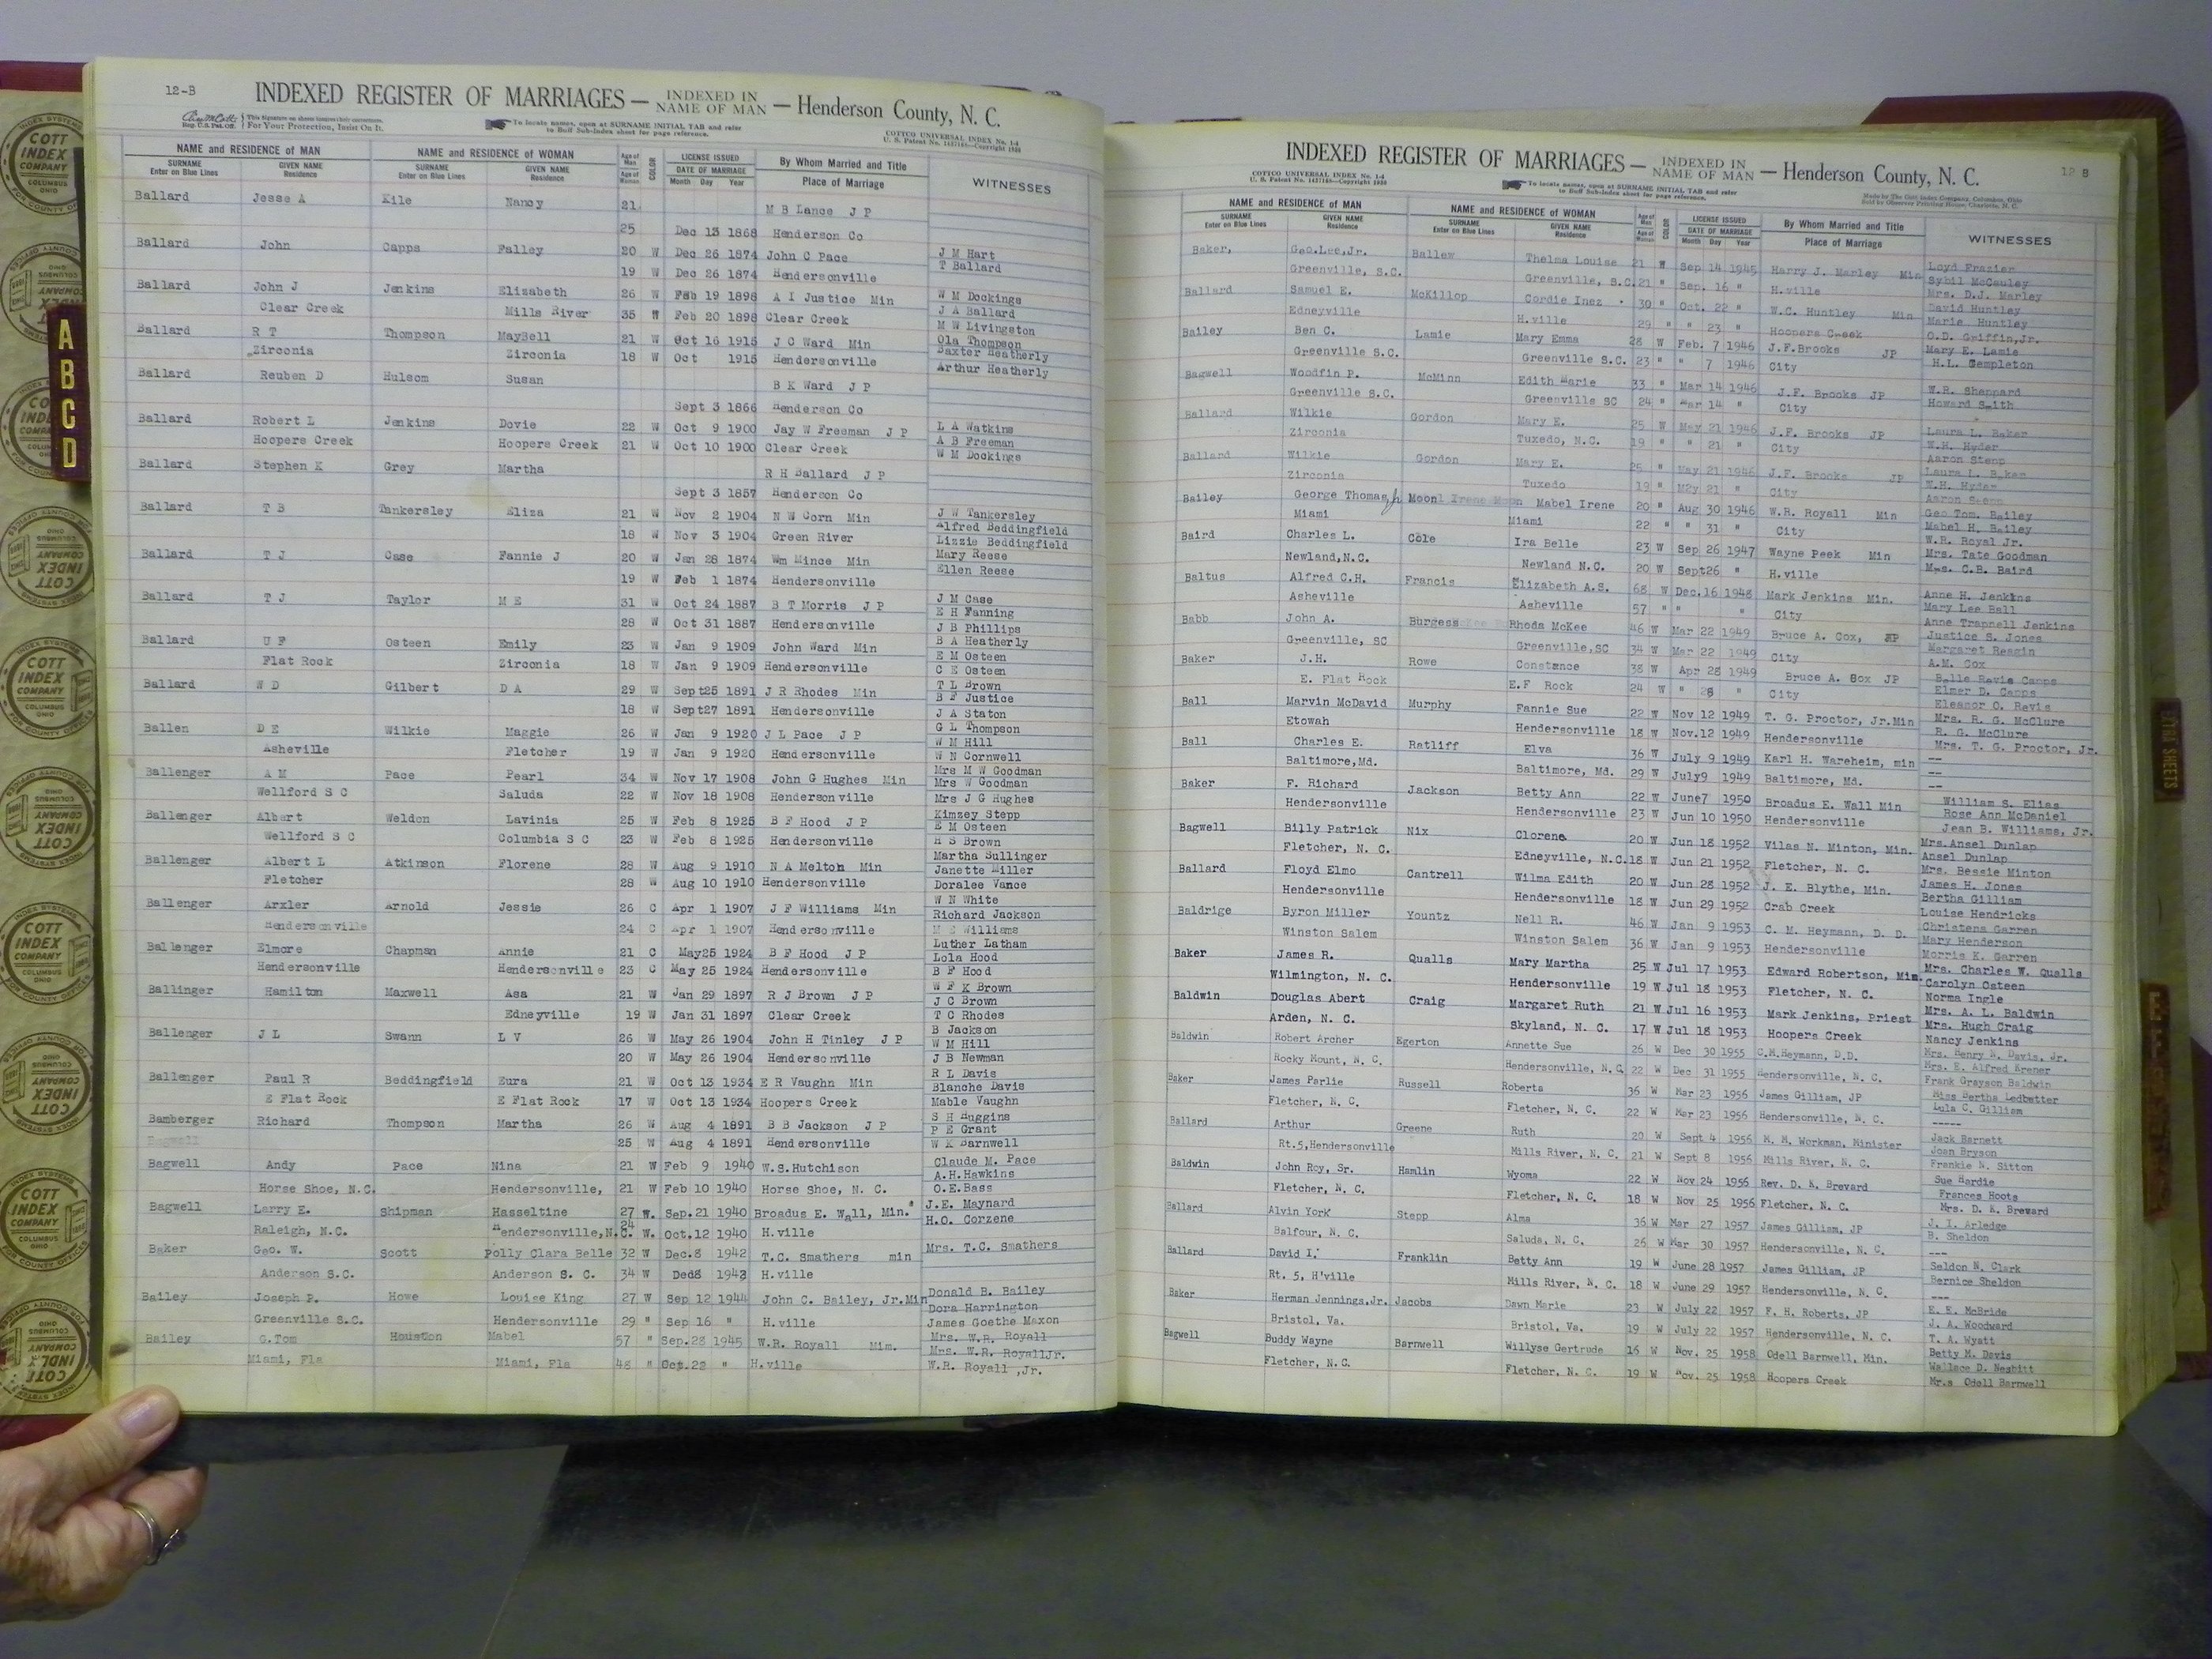 12-B
INDEXED REGISTER OF MARRIAGES — INDEXED IN NAME OF MAN — Henderson County, N. C.
For Your Protection, Insist On It.
To locate names, open at SURNAME INITIAL TAB and refer
to Buff Sub-Index sheet for page reference.
COTTCO UNIVERSAL INDEX No. 1-4
NAME and RESIDENCE of MAN NAME and RESIDENCE of WOMAN Age of Man COLOR LICENSE ISSUED By Whom Married and Title WITNESSES
SURNAME GIVEN NAME SURNAME GIVEN NAME Age of Woman DATE OF MARRIAGE Place of Marriage
Enter on Blue Lines Residence Enter on Blue Lines Residence Month Day Year
Ballard Jesse A Kile Nancy 21 M B Lance J P
25 Dec 13 1868 Henderson Co
Ballard John Capps Falley 20 W Dec 26 1874 John C Pace J M Hart
19 W Dec 26 1874 Hendersonville T Ballard
Ballard John J Jenkins Elizabeth 26 W Feb 19 1898 A I Justice Min W M Dockings
Clear Creek Mills River 35 W Feb 20 1898 Clear Creek J A Ballard
M W Livingston
Ballard R T Thompson MayBell 21 W Oct 16 1915 J C Ward Min Ola Thompson
Zirconia Zirconia 18 W Oct 1915 Hendersonville Baxter Heatherly
Arthur Heatherly
Ballard Reuben D Hulsom Susan B K Ward J P
Sept 3 1866 Henderson Co
Ballard Robert L Jenkins Dovie 22 W Oct 9 1900 Jay W Freeman J P L A Watkins
Hoopers Creek Hoopers Creek 21 W Oct 10 1900 Clear Creek A B Freeman
W M Dockings
Ballard Stephen K Grey Martha R H Ballard J P
Sept 3 1857 Henderson Co
Ballard T B Tankersley Eliza 21 W Nov 2 1904 N W Corn Min J W Tankersley
18 W Nov 3 1904 Green River Alfred Beddingfield
Lizzie Beddingfield
Ballard T J Case Fannie J 20 W Jan 28 1874 Wm Mince Min Mary Reese
19 W Feb 1 1874 Hendersonville Ellen Reese
Ballard T J Taylor M E 31 W Oct 24 1887 B T Morris J P J M Case
28 W Oct 31 1887 Hendersonville E H Fanning
J B Phillips
Ballard U F Osteen Emily 23 W Jan 9 1909 John Ward Min B A Heatherly
Flat Rock Zirconia 18 W Jan 9 1909 Hendersonville E M Osteen
C E Osteen
Ballard W D Gilbert D A 29 W Sept25 1891 J R Rhodes Min T L Brown
18 W Sept27 1891 Hendersonville B F Justice
J A Staton
Ballen D E Wilkie Maggie 26 W Jan 9 1920 J L Pace J P G L Thompson
Asheville Fletcher 19 W Jan 9 1920 Hendersonville W M Hill
W N Cornwell
Ballenger A M Pace Pearl 34 W Nov 17 1908 John G Hughes Min Mrs M W Goodman
Wellford S C Saluda 22 W Nov 18 1908 Hendersonville Mrs W Goodman
Mrs J G Hughes
Ballenger Albert Weldon Lavinia 25 W Feb 8 1925 B F Hood J P Kimzey Stepp
Wellford S C Columbia S C 23 W Feb 8 1925 Hendersonville E M Osteen
H S Brown
Ballenger Albert L Atkinson Florene 28 W Aug 9 1910 N A Melton Min Martha Sullinger
Fletcher 28 W Aug 10 1910 Hendersonville Janette Miller
Doralee Vance
Ballenger Arxler Arnold Jessie 26 C Apr 1 1907 J F Williams Min W N White
Hendersonville 24 C Apr 1 1907 Hendersonville Richard Jackson
M E Williams
Ballenger Elmore Chapman Annie 21 C May25 1924 B F Hood J P Luther Latham
Hendersonville Hendersonville 23 C May 25 1924 Hendersonville Lola Hood
B F Hood
Ballinger Hamilton Maxwell Asa 21 W Jan 29 1897 R J Brown J P W F K Brown
Edneyville 19 W Jan 31 1897 Clear Creek J C Brown
T C Rhodes
Ballenger J L Swann L V 26 W May 26 1904 John H Tinley J P B Jackson
20 W May 26 1904 Hendersonville W M Hill
J B Newman
Ballenger Paul R Beddingfield Eura 21 W Oct 13 1934 E R Vaughn Min R L Davis
E Flat Rock E Flat Rock 17 W Oct 13 1934 Hoopers Creek Blanche Davis
Mable Vaughn
Bamberger Richard Thompson Martha 26 W Aug 4 1891 B B Jackson J P S H Huggins
Bagwell 25 W Aug 4 1891 Hendersonville P E Grant
W K Barnwell
Bagwell Andy Pace Nina 21 W Feb 9 1940 W.S.Hutchison Claude M. Pace
Horse Shoe, N.C. Hendersonville, 21 W Feb 10 1940 Horse Shoe, N. C. A.H.Hawkins
O.E.Bass
Bagwell Larry E. Shipman Hasseltine 27 W. Sep.21 1940 Broadus E. Wall, Min. J.E. Maynard
Raleigh, N.C. Hendersonville,N.C. 24 W. Oct.12 1940 H.ville H.O. Corzene
Baker Geo. W. Scott Polly Clara Belle 32 W Dec.8 1942 T.C. Smathers min Mrs. T.C. Smathers
Anderson S.C. Anderson S. C. 34 W Ded8 1942 H.ville
Bailey Joseph P. Howe Louise King 27 W Sep 12 1944 John C. Bailey, Jr.Min Donald B. Bailey
Greenville S.C. Hendersonville 29 " Sep 16 " H.ville Dora Harrington
James Goethe Maxon
Bailey G.Tom Houston Mabel 57 " Sep.28 1945 W.R. Royall Mim. Mrs. W.R. Royall
Miami, Fla Miami, Fla 48 " Oct.28 " H.ville Mrs. W.R. RoyallJr.
W.R. Royall ,Jr.
INDEXED REGISTER OF MARRIAGES — INDEXED IN NAME OF MAN — Henderson County, N. C.
12 B
COTTCO UNIVERSAL INDEX No. 1-4
To locate names, open at SURNAME INITIAL TAB and refer
to Buff Sub-Index sheet for page reference.
Made by The Cott Index Company, Columbus, Ohio
Sold by Observer Printing House, Charlotte, N. C.
NAME and RESIDENCE of MAN NAME and RESIDENCE of WOMAN Age of Man COLOR LICENSE ISSUED By Whom Married and Title WITNESSES
SURNAME GIVEN NAME SURNAME GIVEN NAME Age of Woman DATE OF MARRIAGE Place of Marriage
Enter on Blue Lines Residence Enter on Blue Lines Residence Month Day Year
Baker, Geo.Lee,Jr. Ballew Thelma Louise 21 W Sep 14 1945 Harry J. Marley Min Loyd Frazier
Greenville, S.C. Greenville, S.C. 21 " Sep. 16 " H.ville Sybil McCauley
Mrs. D.J. Marley
Ballard Samuel E. McKillop Cordie Inez 30 " Oct. 22 " W.C. Huntley Min David Huntley
Edneyville H.ville 29 " " 23 " Hoopers Creek Marie Huntley
O.D. Griffin,Jr.
Bailey Ben C. Lamie Mary Emma 28 W Feb. 7 1946 J.F.Brooks JP Mary E. Lamie
Greenville S.C. Greenville S.C. 23 " " 7 1946 City H.L. Templeton
Bagwell Woodfin P. McMinn Edith Marie 33 " Mar 14 1946 J.F. Brooks JP W.R. Sheppard
Greenville S.C. Greenville SC 24 " Mar 14 " City Howard Smith
Ballard Wilkie Gordon Mary E. 25 W May 21 1946 J.F. Brooks JP Laura L. Baker
Zirconia Tuxedo, N.C. 19 " " 21 " City W.H. Hyder
Aaron Stepp
Ballard Wilkie Gordon Mary E. 25 " May 21 1946 J.F. Brooks JP Laura L. Baker
Zirconia Tuxedo 19 " May 21 " City W.H. Hyder
Aaron Stepp
Bailey George Thomas, Jr Moon Mabel Irene 20 " Aug 30 1946 W.R. Royall Min Geo Tom. Bailey
Miami Miami 22 " " 31 " City Mabel H. Bailey
W.R. Royal Jr.
Baird Charles L. Cole Ira Belle 23 W Sep 26 1947 Wayne Peek Min Mrs. Tate Goodman
Newland,N.C. Newland N.C. 20 W Sept26 " H.ville Mrs. C.B. Baird
Baltus Alfred C.H. Francis Elizabeth A.S. 68 W Dec.16 1948 Mark Jenkins Min. Anne H. Jenkins
Asheville Asheville 57 " " " City Mary Lee Ball
Anne Trapnell Jenkins
Babb John A. Burgess Rhoda McKee 46 W Mar 22 1949 Bruce A. Cox, JP Justice S. Jones
Greenville, SC Greenville,SC 34 W Mar 22 1949 City Margaret Reagin
A.M. Cox
Baker J.H. Rowe Constance 38 W Apr 28 1949 Bruce A. Cox JP Belle Revis Capps
E. Flat Rock E.F Rock 24 W " 28 " City Elmer D. Capps
Eleanor O. Revis
Ball Marvin McDavid Murphy Fannie Sue 22 W Nov 12 1949 T. G. Proctor, Jr.Min Mrs. R. G. McClure
Etowah Hendersonville 18 W Nov.12 1949 Hendersonville R. G. McClure
Mrs. T. G. Proctor, Jr.
Ball Charles E. Ratliff Elva 36 W July 9 1949 Karl H. Wareheim, min --
Baltimore,Md. Baltimore, Md. 29 W July9 1949 Baltimore, Md. --
--
Baker F. Richard Jackson Betty Ann 22 W June7 1950 Broadus E. Wall Min William S. Elias
Hendersonville Hendersonville 23 W Jun 10 1950 Hendersonville Rose Ann McDaniel
Jean B. Williams, Jr.
Bagwell Billy Patrick Nix Clorene 20 W Jun 18 1952 Vilas N. Minton, Min. Mrs.Ansel Dunlap
Fletcher, N. C. Edneyville, N.C. 18 W Jun 21 1952 Fletcher, N. C. Ansel Dunlap
Mrs. Bessie Minton
Ballard Floyd Elmo Cantrell Wilma Edith 20 W Jun 28 1952 J. E. Blythe, Min. James H. Jones
Hendersonville Hendersonville 18 W Jun 29 1952 Crab Creek Bertha Gilliam
Louise Hendricks
Baldrige Byron Miller Yountz Nell R. 46 W Jan 9 1953 C. M. Heymann, D. D. Christena Garren
Winston Salem Winston Salem 36 W Jan 9 1953 Hendersonville Mary Henderson
Morris K. Garren
Baker James R. Qualls Mary Martha 25 W Jul 17 1953 Edward Robertson, Min. Mrs. Charles W. Qualls
Wilmington, N. C. Hendersonville 19 W Jul 18 1953 Fletcher, N. C. Carolyn Osteen
Norma Ingle
Baldwin Douglas Abert Craig Margaret Ruth 21 W Jul 16 1953 Mark Jenkins, Priest Mrs. A. L. Baldwin
Arden, N. C. Skyland, N. C. 17 W Jul 18 1953 Hoopers Creek Mrs. Hugh Craig
Nancy Jenkins
Baldwin Robert Archer Egerton Annette Sue 26 W Dec 30 1955 C.M.Heymann, D.D. Mrs. Henry N. Davis, Jr.
Rocky Mount, N. C. Hendersonville, N.C. 22 W Dec 31 1955 Hendersonville, N. C. Mrs. E. Alfred Brener
Frank Grayson Baldwin
Baker James Parlie Russell Roberts 36 W Mar 23 1956 James Gilliam, JP Miss Bertha Ledbetter
Fletcher, N. C. Fletcher, N. C. 22 W Mar 23 1956 Hendersonville, N. C. Lula C. Gilliam
-----
Ballard Arthur Greene Ruth 20 W Sept 4 1956 M. M. Workman, Minister Jack Barnett
Rt.5,Hendersonville Mills River, N. C. 21 W Sept 8 1956 Mills River, N. C. Joan Bryson
Frankie N. Sitton
Baldwin John Roy, Sr. Hamlin Wyoma 22 W Nov 24 1956 Rev. D. K. Brevard Sue Hardie
Fletcher, N. C. Fletcher, N. C. 18 W Nov 25 1956 Fletcher, N. C. Frances Hoots
Mrs. D. K. Breward
Ballard Alvin York Stepp Alma 36 W Mar 27 1957 James Gilliam, JP J. I. Arledge
Balfour, N. C. Saluda, N. C. 26 W Mar 30 1957 Hendersonville, N. C. B. Sheldon
---
Ballard David I. Franklin Betty Ann 19 W June 28 1957 James Gilliam, JP Seldon N. Clark
Rt. 5, H'ville Mills River, N. C. 18 W June 29 1957 Hendersonville, N. C. Bernice Sheldon
---
Baker Herman Jennings,Jr. Jacobs Dawn Marie 23 W July 22 1957 F. H. Roberts, JP E. E. McBride
Bristol, Va. Bristol, Va. 19 W July 22 1957 Hendersonville, N. C. J. A. Woodward
T. A. Wyatt
Bagwell Buddy Wayne Barnwell Willyse Gertrude 16 W Nov. 25 1958 Odell Barnwell, Min. Betty M. Davis
Fletcher, N.C. Fletcher, N. C. 19 W Nov. 25 1958 Hoopers Creek Wallace D. Nesbitt
Mr.s Odell Barnwell
A
B
C
D
COTT
INDEX
COMPANY
COLUMBUS
OHIO